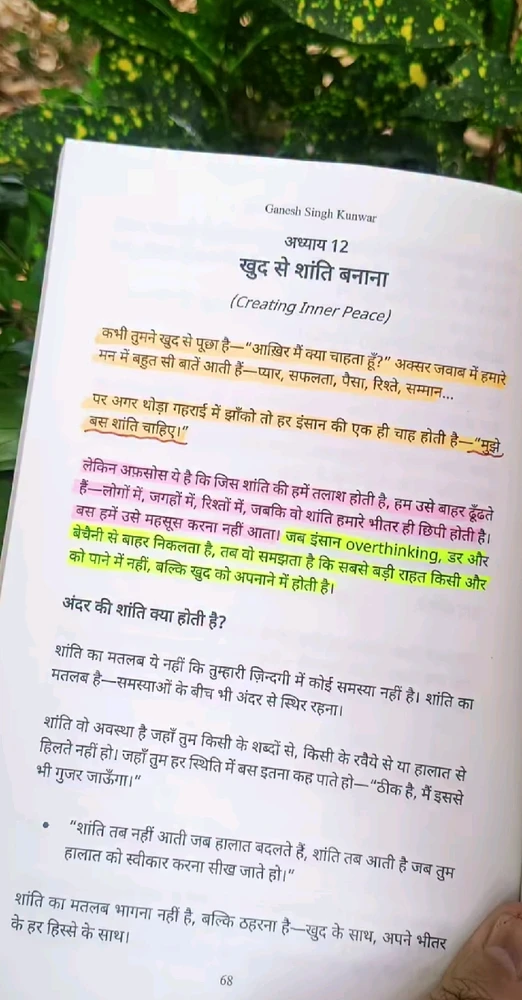 Ganesh Singh Kunwar
अध्याय 12
खुद से शांति बनाना
(Creating Inner Peace)
कभी तुमने खुद से पूछा है—“आख़िर मैं क्या चाहता हूँ?” अक्सर जवाब में हमारे
मन में बहुत सी बातें आती हैं—प्यार, सफलता, पैसा, रिश्ते, सम्मान...
पर अगर थोड़ा गहराई में झाँको तो हर इंसान की एक ही चाह होती है—“मुझे
बस शांति चाहिए।”
लेकिन अफ़सोस ये है कि जिस शांति की हमें तलाश होती है, हम उसे बाहर ढूँढते
हैं—लोगों में, जगहों में, रिश्तों में, जबकि वो शांति हमारे भीतर ही छिपी होती है।
बस हमें उसे महसूस करना नहीं आता। जब इंसान overthinking, डर और
बेचैनी से बाहर निकलता है, तब वो समझता है कि सबसे बड़ी राहत किसी और
को पाने में नहीं, बल्कि खुद को अपनाने में होती है।
अंदर की शांति क्या होती है?
शांति का मतलब ये नहीं कि तुम्हारी ज़िन्दगी में कोई समस्या नहीं है। शांति का
मतलब है—समस्याओं के बीच भी अंदर से स्थिर रहना।
शांति वो अवस्था है जहाँ तुम किसी के शब्दों से, किसी के रवैये से या हालात से
हिलते नहीं हो। जहाँ तुम हर स्थिति में बस इतना कह पाते हो—“ठीक है, मैं इससे
भी गुजर जाऊँगा।”
• “शांति तब नहीं आती जब हालात बदलते हैं, शांति तब आती है जब तुम
हालात को स्वीकार करना सीख जाते हो।”
शांति का मतलब भागना नहीं है, बल्कि ठहरना है—खुद के साथ, अपने भीतर
के हर हिस्से के साथ।
68